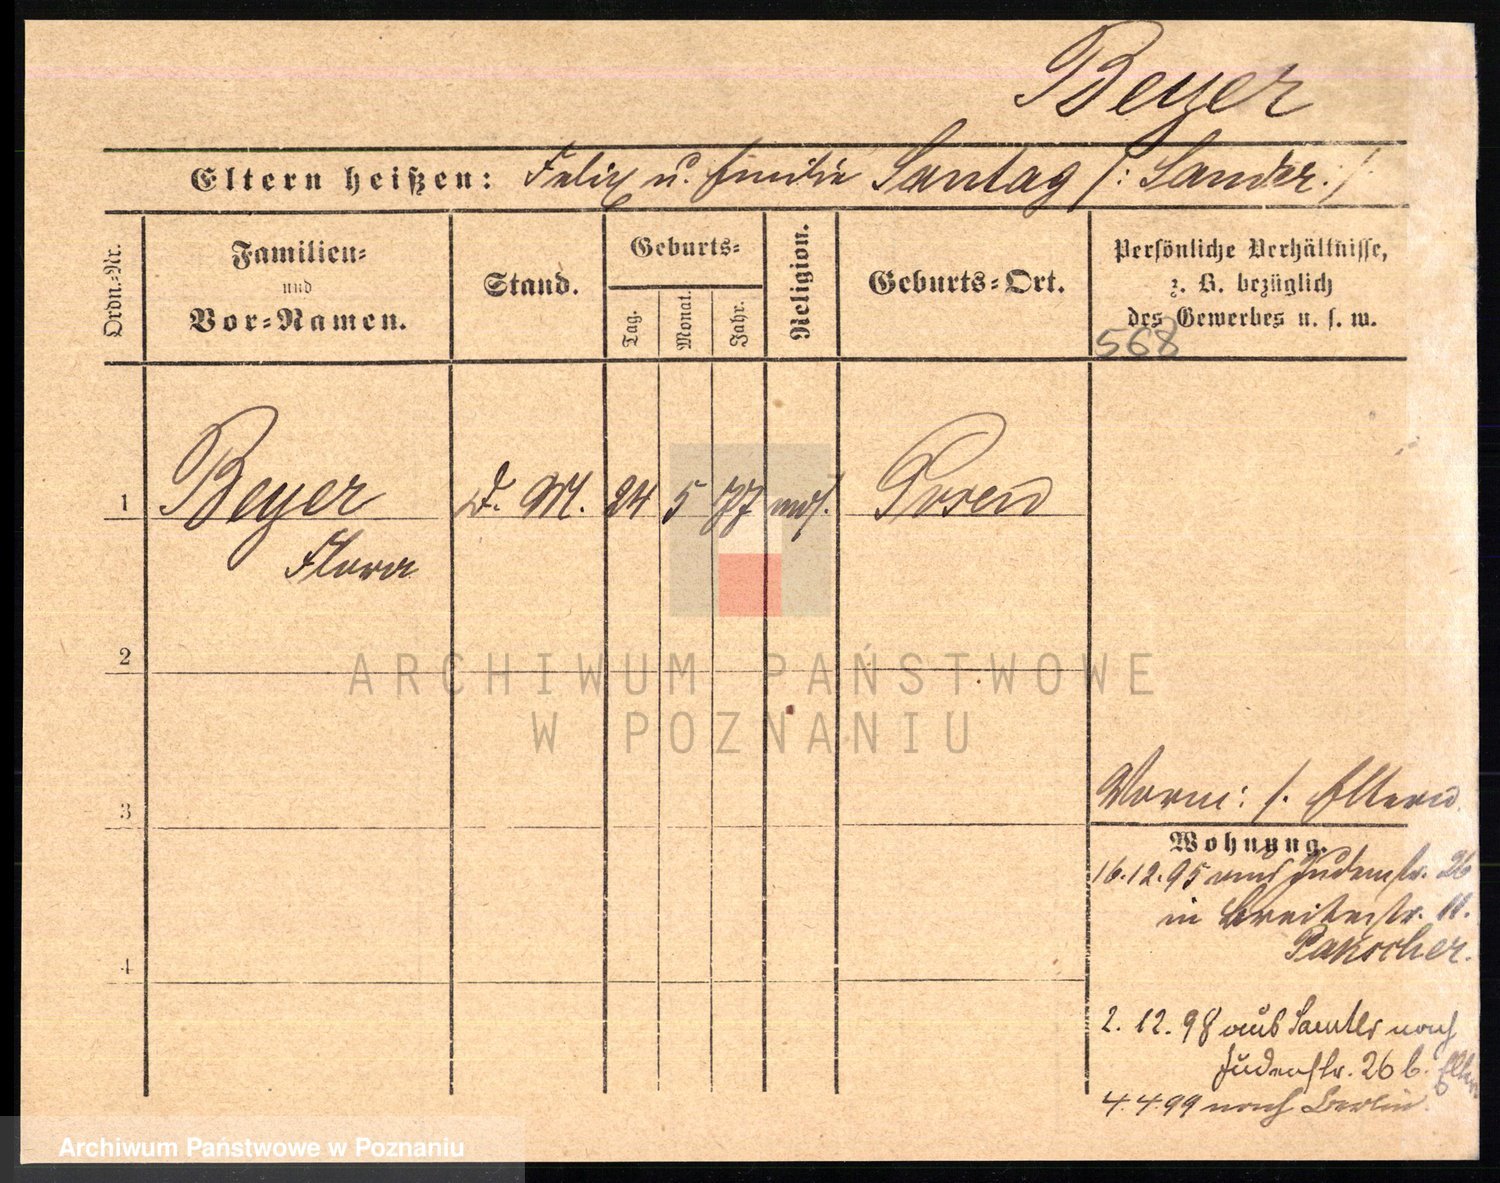 Beyer
Eltern heißen: Felix u. Emilie Santag /: Sander :/
Ordn.-Nr.
Familien-
und
Vor-Namen.
Stand.
Geburts-
Tag.
Monat.
Jahr.
Religion.
Geburts-Ort.
Persönliche Verhältnisse,
z. B. bezüglich
des Gewerbes u. s. w.
568
1 Beyer D. M. 24 5 77 mos. Posen
Flora
2
ARCHIWUM PAŃSTWOWE
W POZNANIU
3
Vorm: s. Eltern
Wohnung.
16.12.95 aus Judenstr. 26
in Breitestr. 11.
Pakscher.
4
2.12.98 aus Samter nach
Judenstr. 26 b. Eltern
4.4.99 nach Berlin.
Archiwum Państwowe w Poznaniu